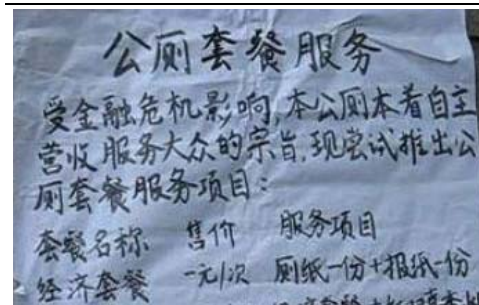 公厕套餐服务
受金融危机影响,本公厕本着自主
营收服务大众的宗旨,现尝试推出公
厕套餐服务项目:
套餐名称 售价 服务项目
经济套餐 一元/次 厕纸一份+报纸一份